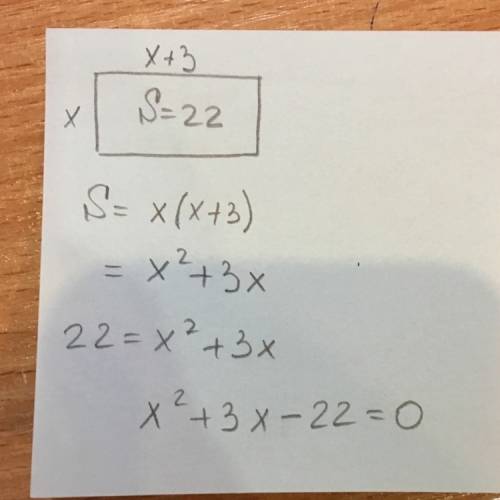 x+3
x
S=22
S= x(x+3)
= x²+3x
22=x²+3x
x²+3x-22=0